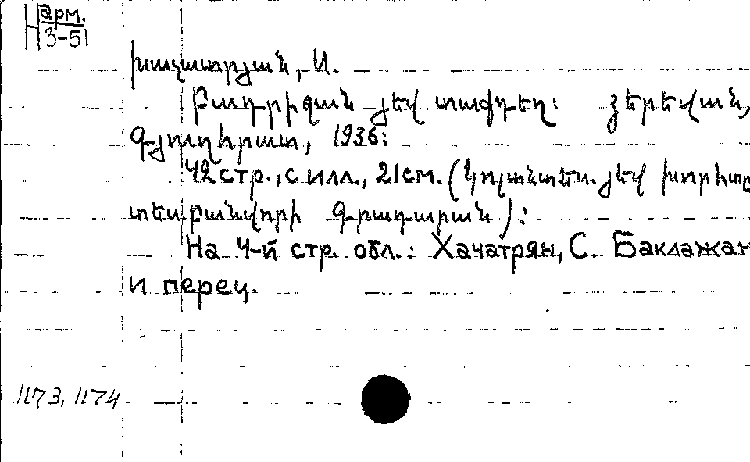 Н арм.
3-51
խաչատրյան, Ս.
Բադրիջան յեվ տաքդեղ: Յերեվան,
Գյուղհրատ, 1936:
42 стр., с илл., 21 см. (Կոլտնտես. յեվ խորհտն
տես բանվորի գրադարան):
На 4-й стр. обл.: Хачатрян, С. Баклажан
и перец.
1173, 1174